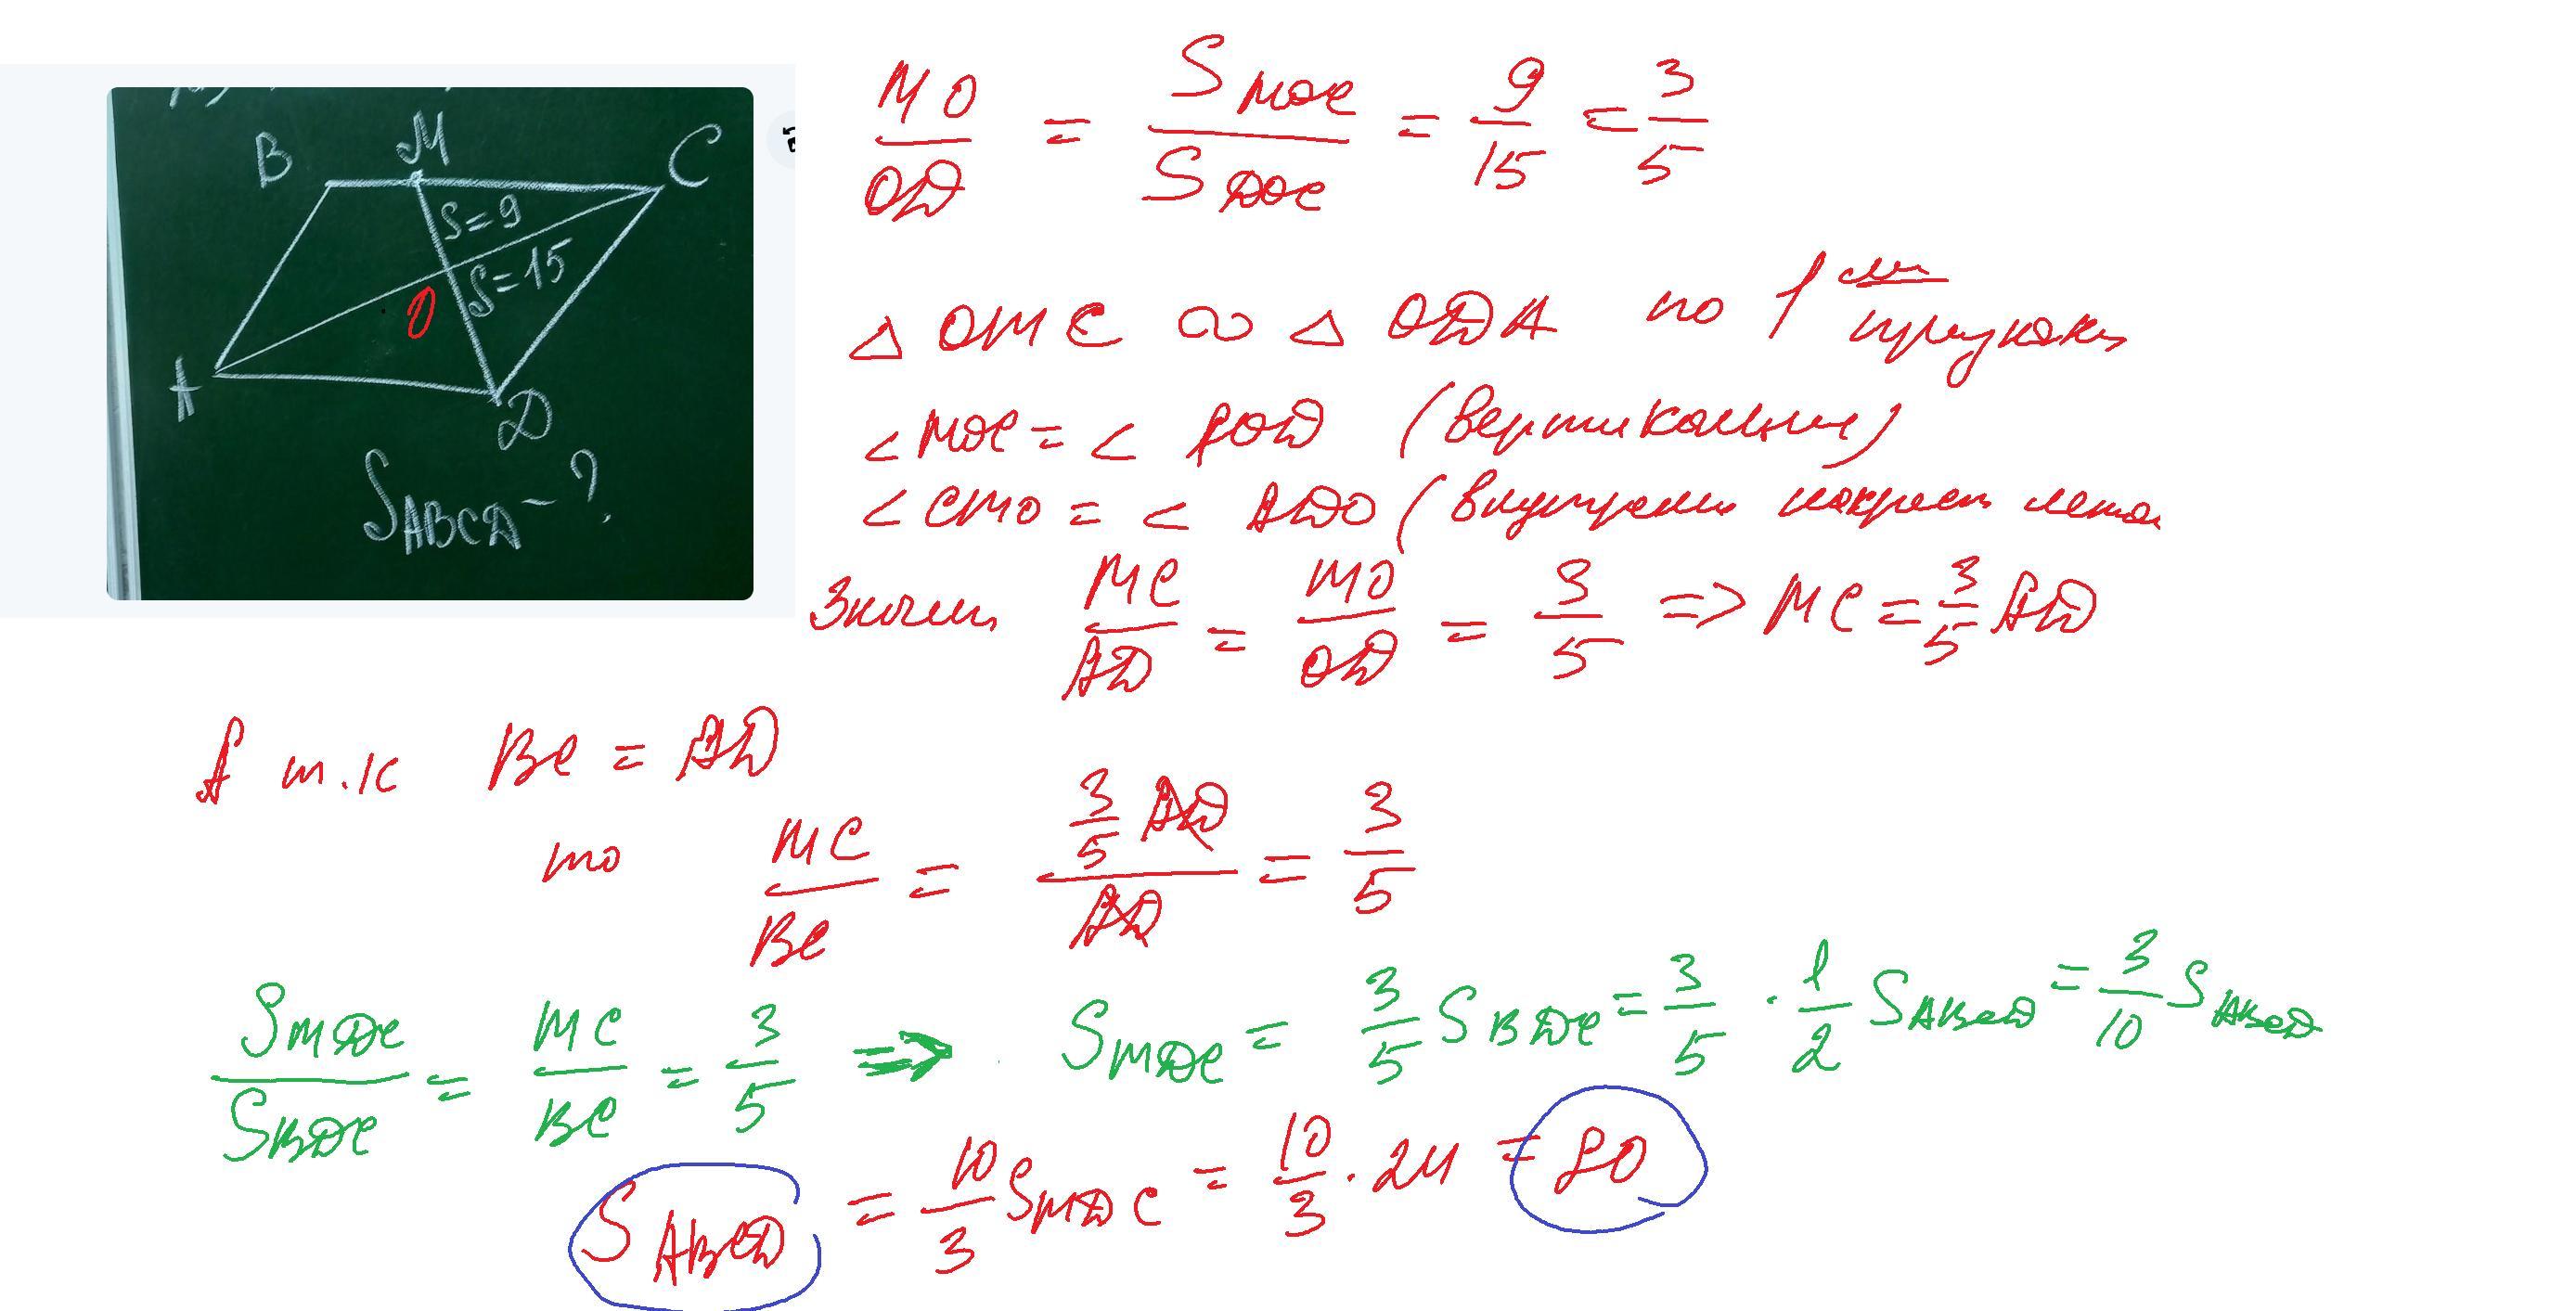 B M C
S=9
S=15
O
A D
S_ABCD - ?
MO/OD = S_MOC/S_DOC = 9/15 = 3/5
△ OMC ∾ △ ODA по 1 признаку
< MOC = < AOD (вертикальные)
< CMO = < ADO (внутрен накрест лежа
Значит MC/AD = MO/OD = 3/5 => MC = 3/5 AD
А т.к BC = AD
то MC/BC = (3/5 AD)/AD = 3/5
S_MDC/S_BDC = MC/BC = 3/5 => S_MDC = 3/5 S_BDC = 3/5 · 1/2 S_ABCD = 3/10 S_ABCD
S_ABCD = 10/3 S_MDC = 10/3 · 24 = 80